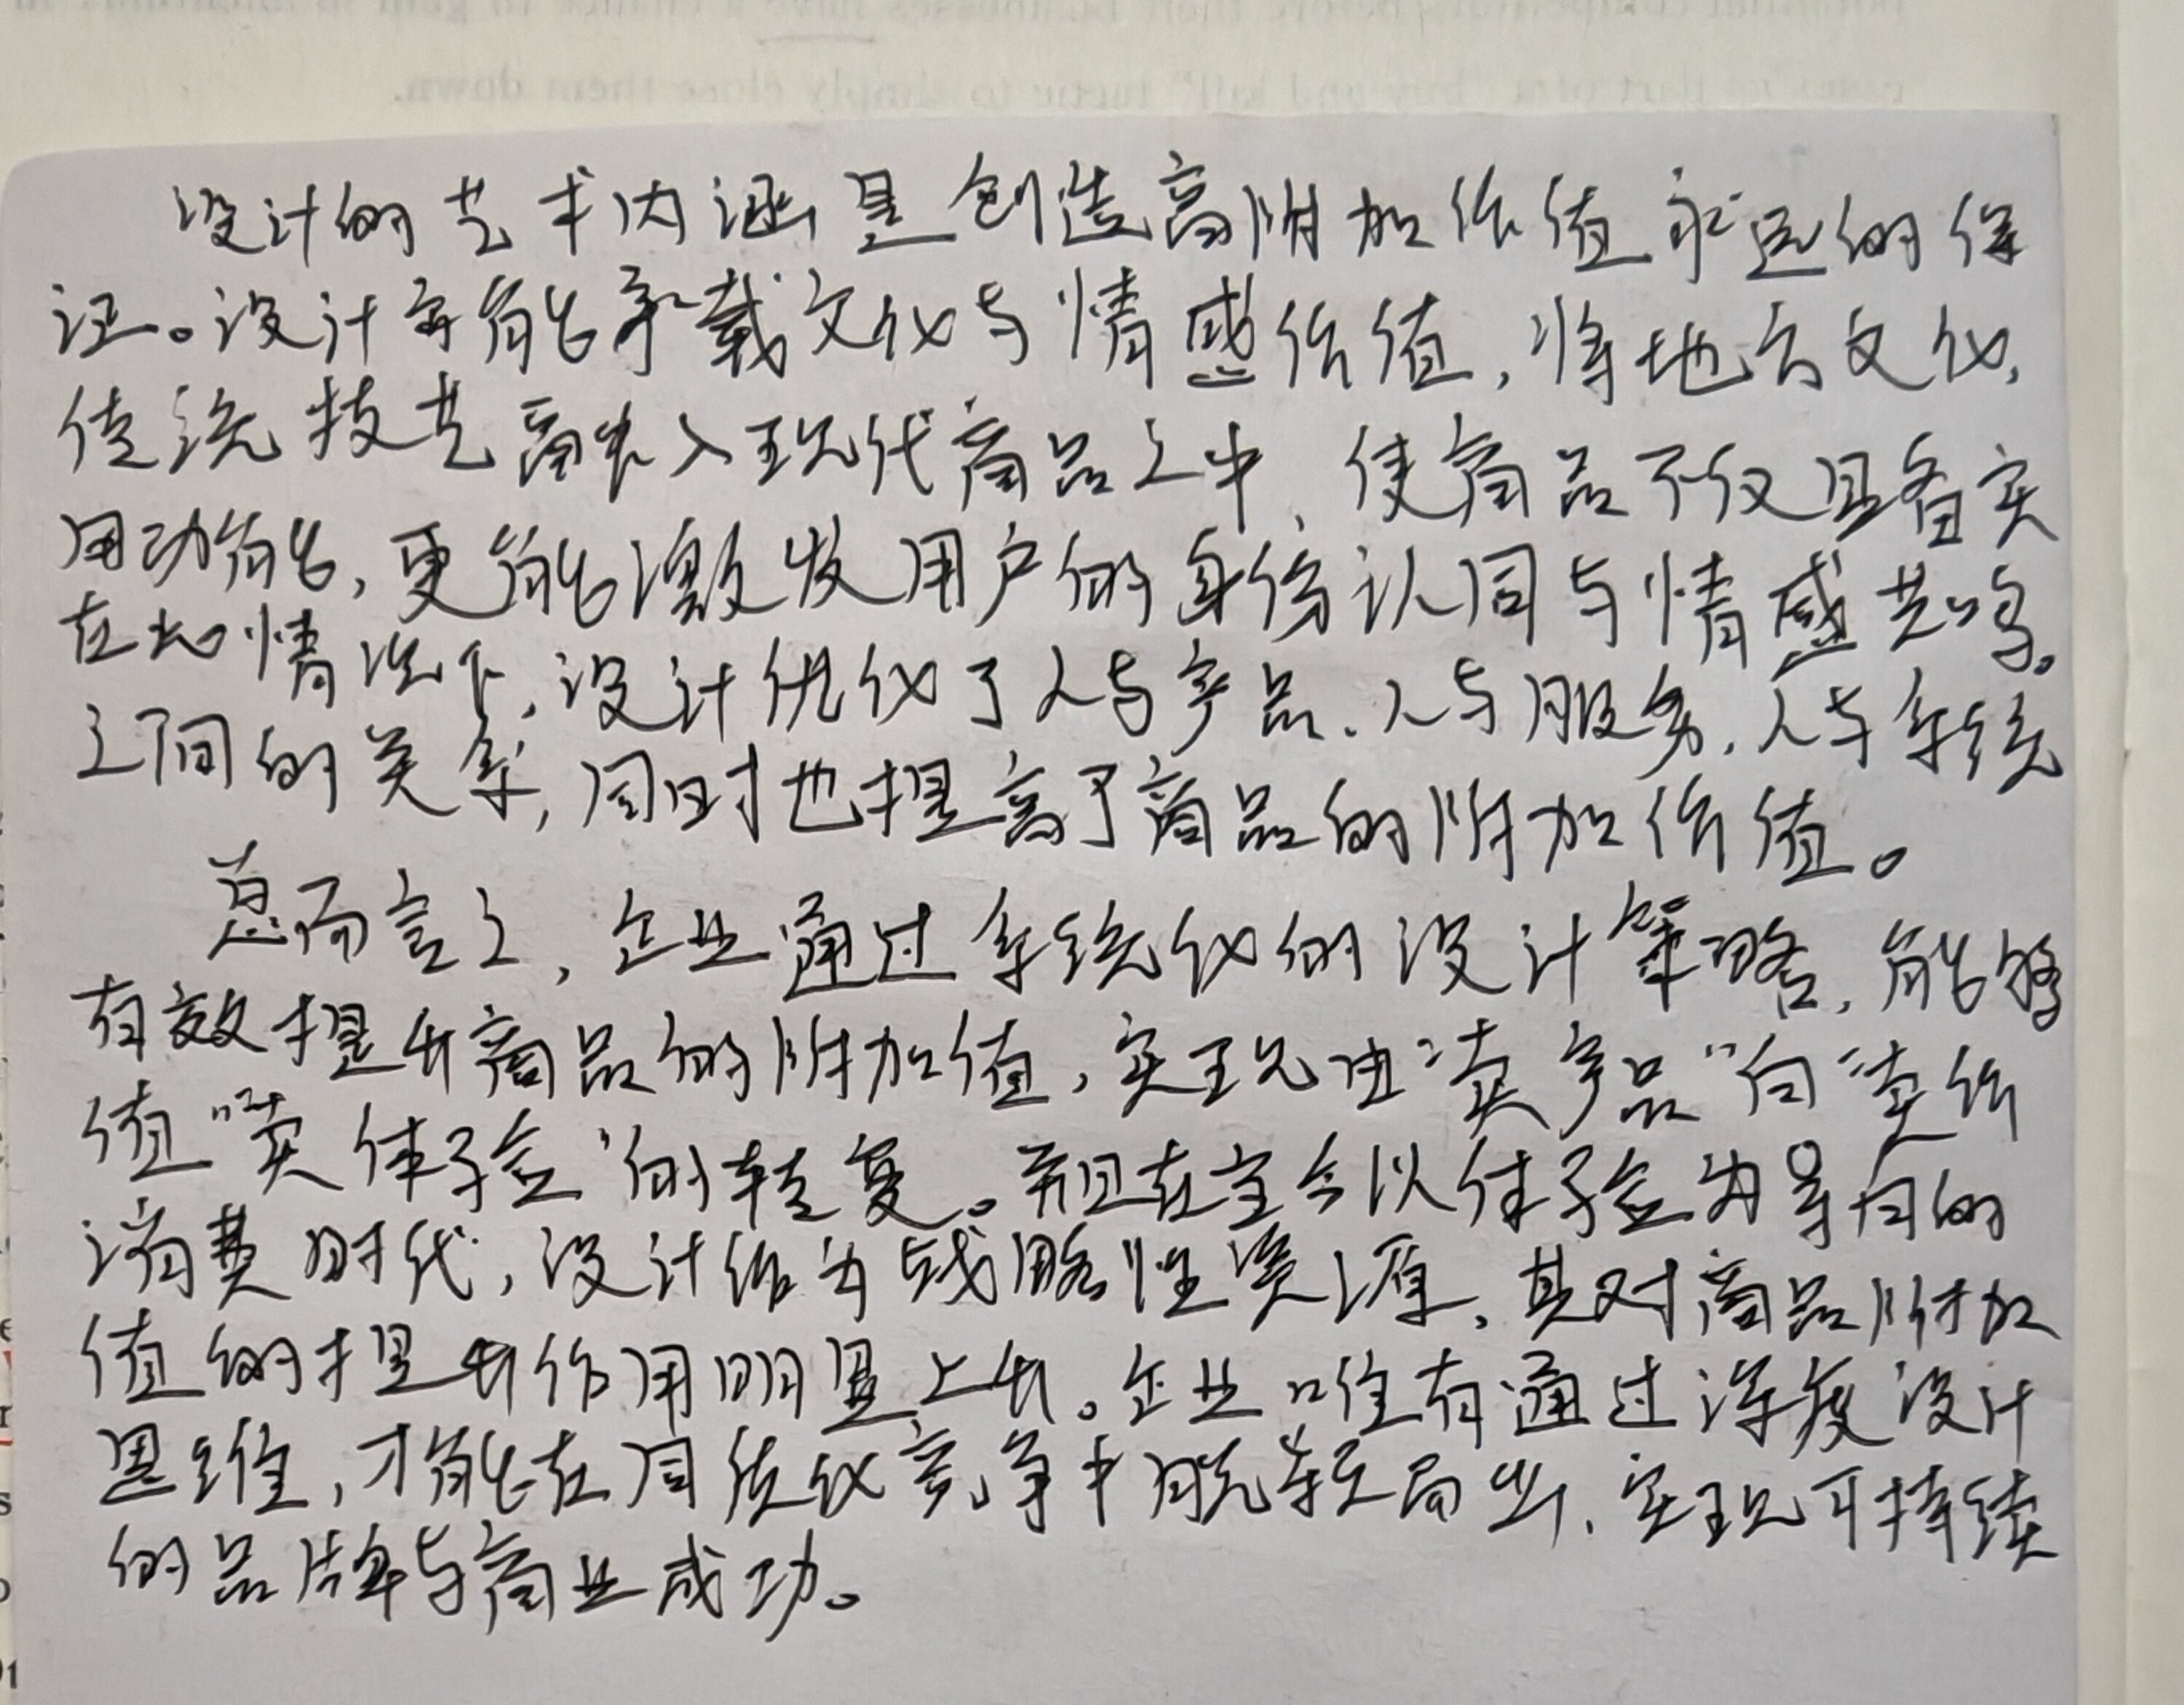 potential competitors before their businesses have a chance to gain
part of a "buy and kill" tactic to simply close them down.
设计的艺术内涵是创造高附加价值永远的保
证。设计富能承载文化与情感价值，将地方文化，
传统技艺融入现代商品之中，使商品不仅具备实
用功能，更能激发用户的身份认同与情感共鸣。
在此情况下，设计优化了人与产品、人与服务、人与系统
之间的关系，同时也提高了商品的附加价值。
总而言之，企业通过系统化的设计策略，能够
有效提升商品的附加值，实现由“卖产品”向“卖价
值”“卖体验”的转变。并且在当今以体验为导向的
消费时代，设计作为战略性资源，其对商品附加
值的提升作用明显上升。企业唯有通过深度设计
思维，才能在同质化竞争中脱颖而出，实现可持续
的品牌与商业成功。